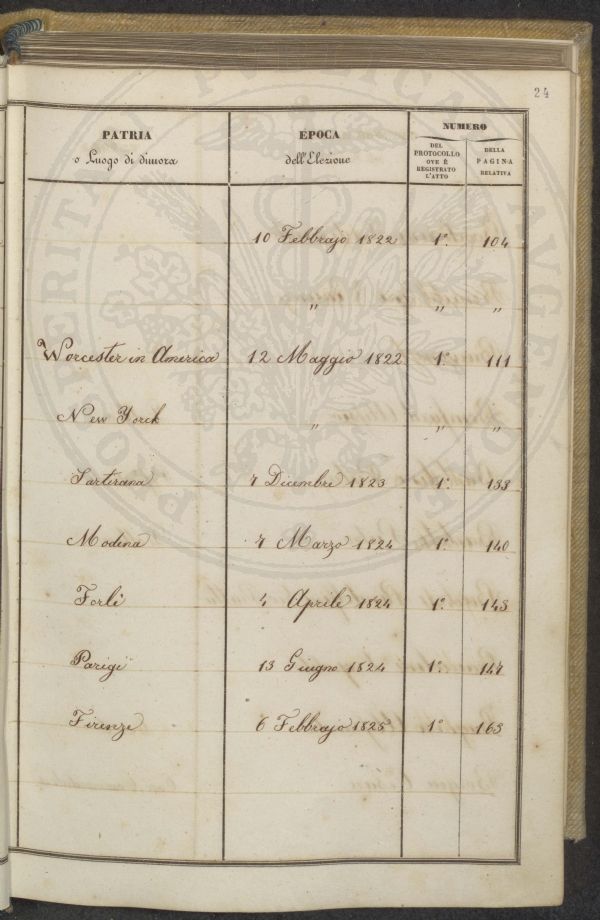 24
PATRIA
o Luogo di dimora
EPOCA
dell'Elezione
NUMERO
DEL
PROTOCOLLO
OVE È
REGISTRATO
L'ATTO
DELLA
PAGINA
RELATIVA
10 Febbrajo 1822 1°. 104
" " "
Worcester in America 12 Maggio 1822 1°. 111
New Yorck " " "
Sartirana 7 Dicembre 1823 1°. 133
Modena 7 Marzo 1824 1°. 140
Forlì 4 Aprile 1824 1°. 143
Parigi 13 Giugno 1824 1°. 147
Firenze 6 Febbrajo 1825 1° 163